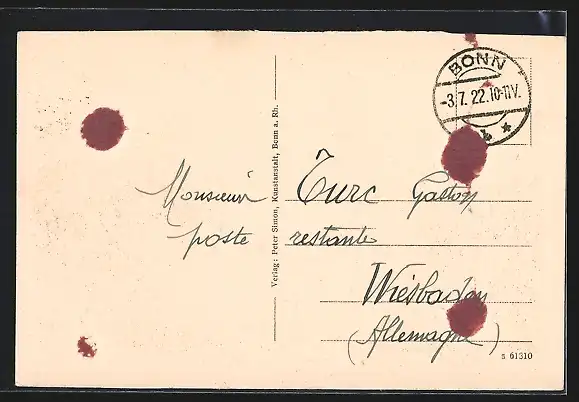 BONN
-3.7.22.10-11V.
b *
Monsieur Turc Gaston
poste restante
Wiesbaden
(Allemagne)
Verlag: Peter Simon, Kunstanstalt, Bonn a. Rh.
s 61310